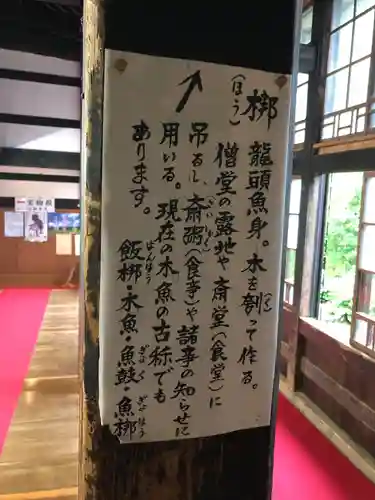 梆(ほう)
龍頭魚身。木を刳って作る。
僧堂の露地や斎堂(食堂)に
吊るし、斎粥(食事)や諸事の知らせに
用いる。現在の木魚の古称でも
あります。
飯梆・木魚・魚鼓・魚梆